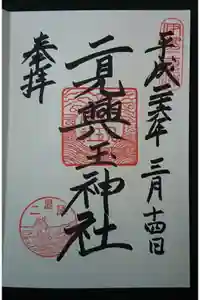 平成二十六年三月十四日
二見興玉神社
奉拝